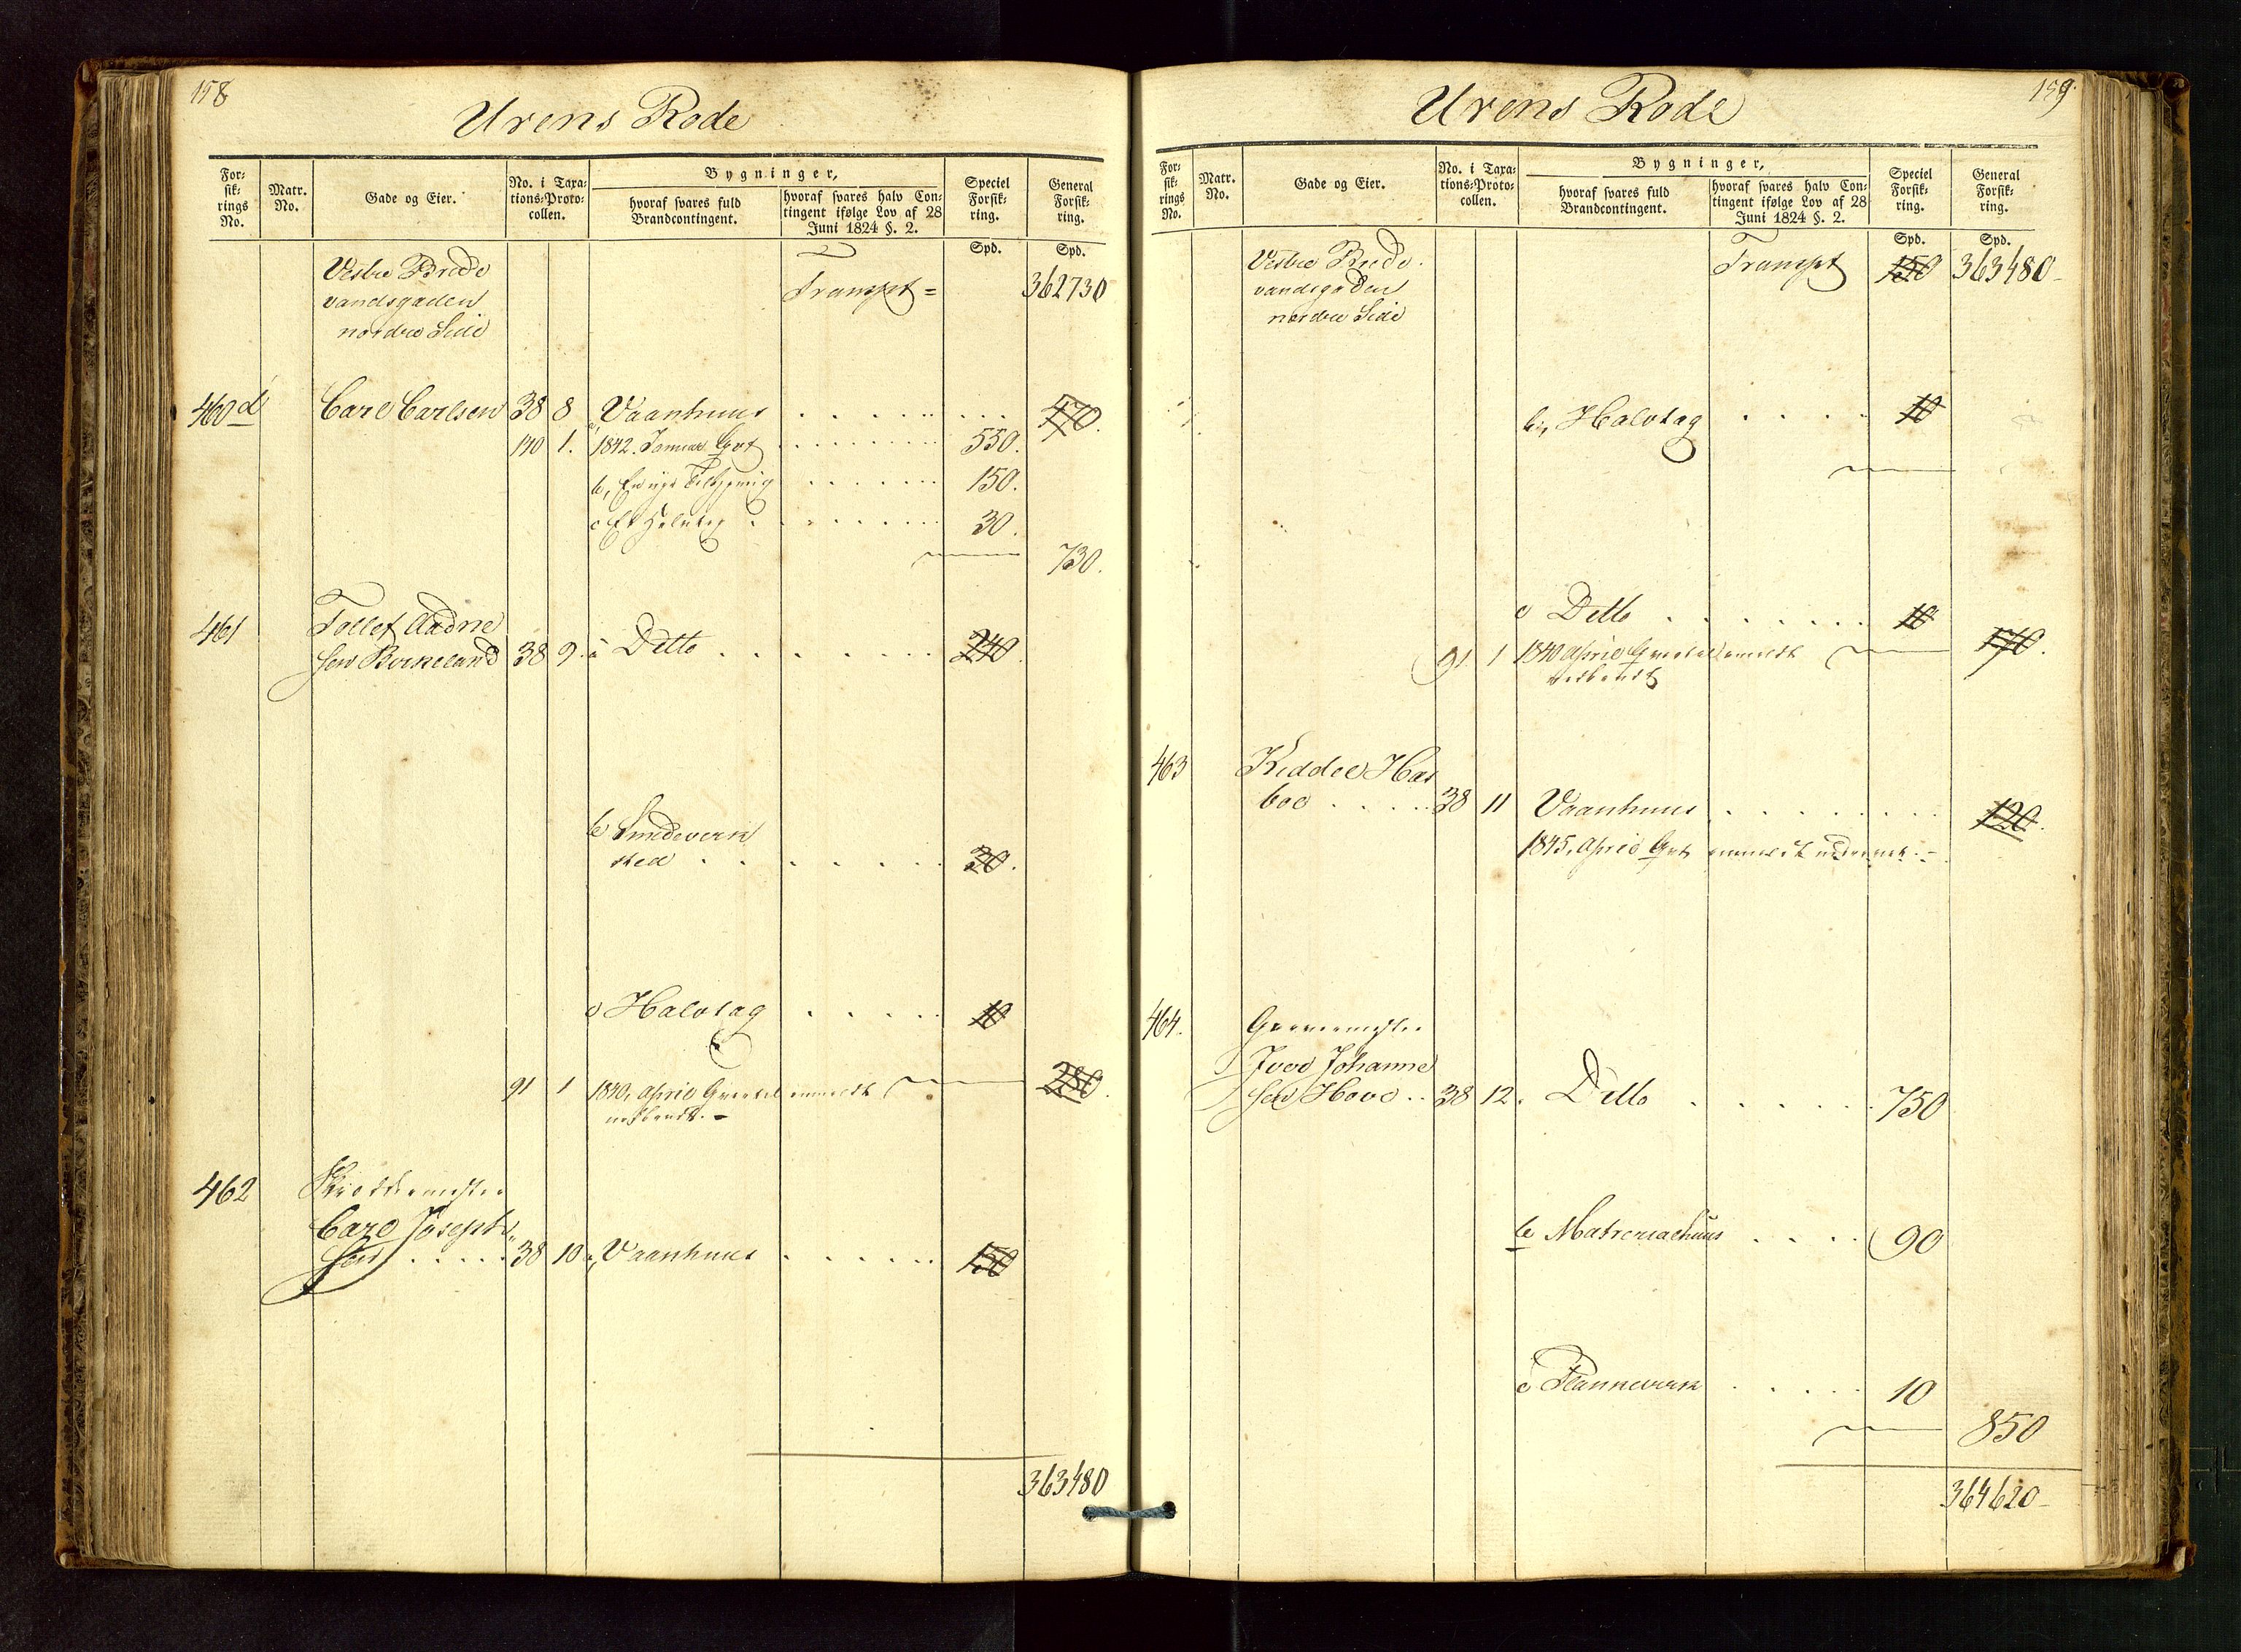 158
Urens Rode
For-
sik-
rings
No.
Matr.
No.
Gade og Eier.
No. i Taxa-
tions-Proto-
collen.
Bygninger,
hvoraf svares fuld
Brandcontingent.
hvoraf svares halv Con-
tingent ifølge Lov af 28
Juni 1824 §. 2.
Speciel
Forsik-
ring.
General
Forsik-
ring.
Spd. Spd.
Vestre Brede
vandsgaden
nordre Side
Transpt = 362730
460d Carl Carlsen 38 8 Vaanhuus . . . . . 470.
140 1. 1842. Januar Qvt . . . . 550.
b, En nye Tilbygning . . . . 150.
c Et Halvtag . . . . 30.
730.
461 Tollef Aadne
sen Birkeland 38 9. a Ditto . . . . . 240
b Smedeverk
sted . . . . . 30.
c Halvtag . . . . 10
91 1 1840, April Qvartal anmeldt 280.
nedbrudt. -
462 Skræddermester
Carl Joseph
sen . . . . 38 10 a, Vaanhuus . . . . . 150
363480
159.
Urens Rode
For-
sik-
rings
No.
Matr.
No.
Gade og Eier.
No. i Taxa-
tions-Proto-
collen.
Bygninger,
hvoraf svares fuld
Brandcontingent.
hvoraf svares halv Con-
tingent ifølge Lov af 28
Juni 1824 §. 2.
Speciel
Forsik-
ring.
General
Forsik-
ring.
Spd. Spd.
Vestre Brede
vandsgaden
nordre Side
Transpt 150 363480
b, Halvtag . . . . 10
c Ditto . . . . . 10
91 1 1840 April Qvartal anmeldt 170.
nedbrudt
463 Keddel Har
boe . . . . 38 11 Vaanhuus . . . . . 120.
1845, April Qvt anmeldt nedrevet. -
464. Garvermester
Iver Johanne
sen Hove .. 38 12. Ditto . . . . . 750
b Materialhuus . . . . 90
c Plankeverk . . . . 10
850
364620